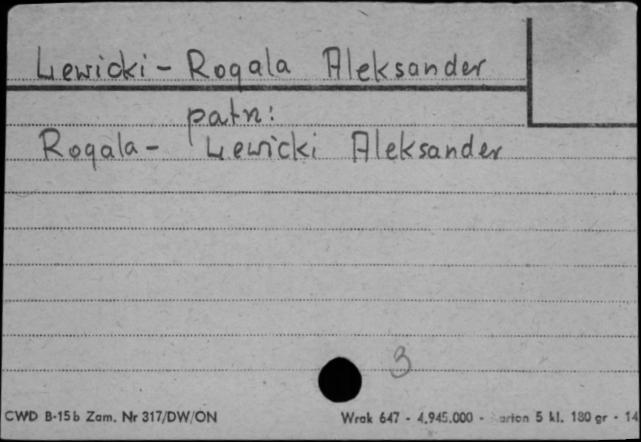 Lewicki - Rogala Aleksander
patrz:
Rogala - Lewicki Aleksander
3
CWD B-15b Zam. Nr 317/DW/ON Wrak 647 - 4.945.000 - arton 5 kl. 180 gr - 14